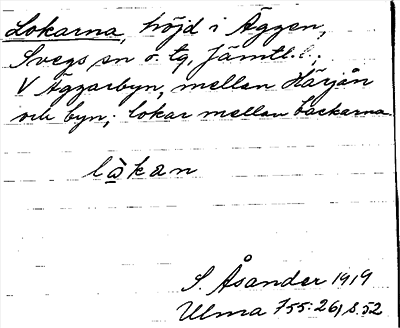 Lokarna, höjd i Äggen,
Svegs sn o. tg, Jämtl. l.;
V Äggarbyn, mellan Härjån
och byn; lokar mellan backarna.
lòkan
S. Åsander 1919
Ulma 755:26, s. 52